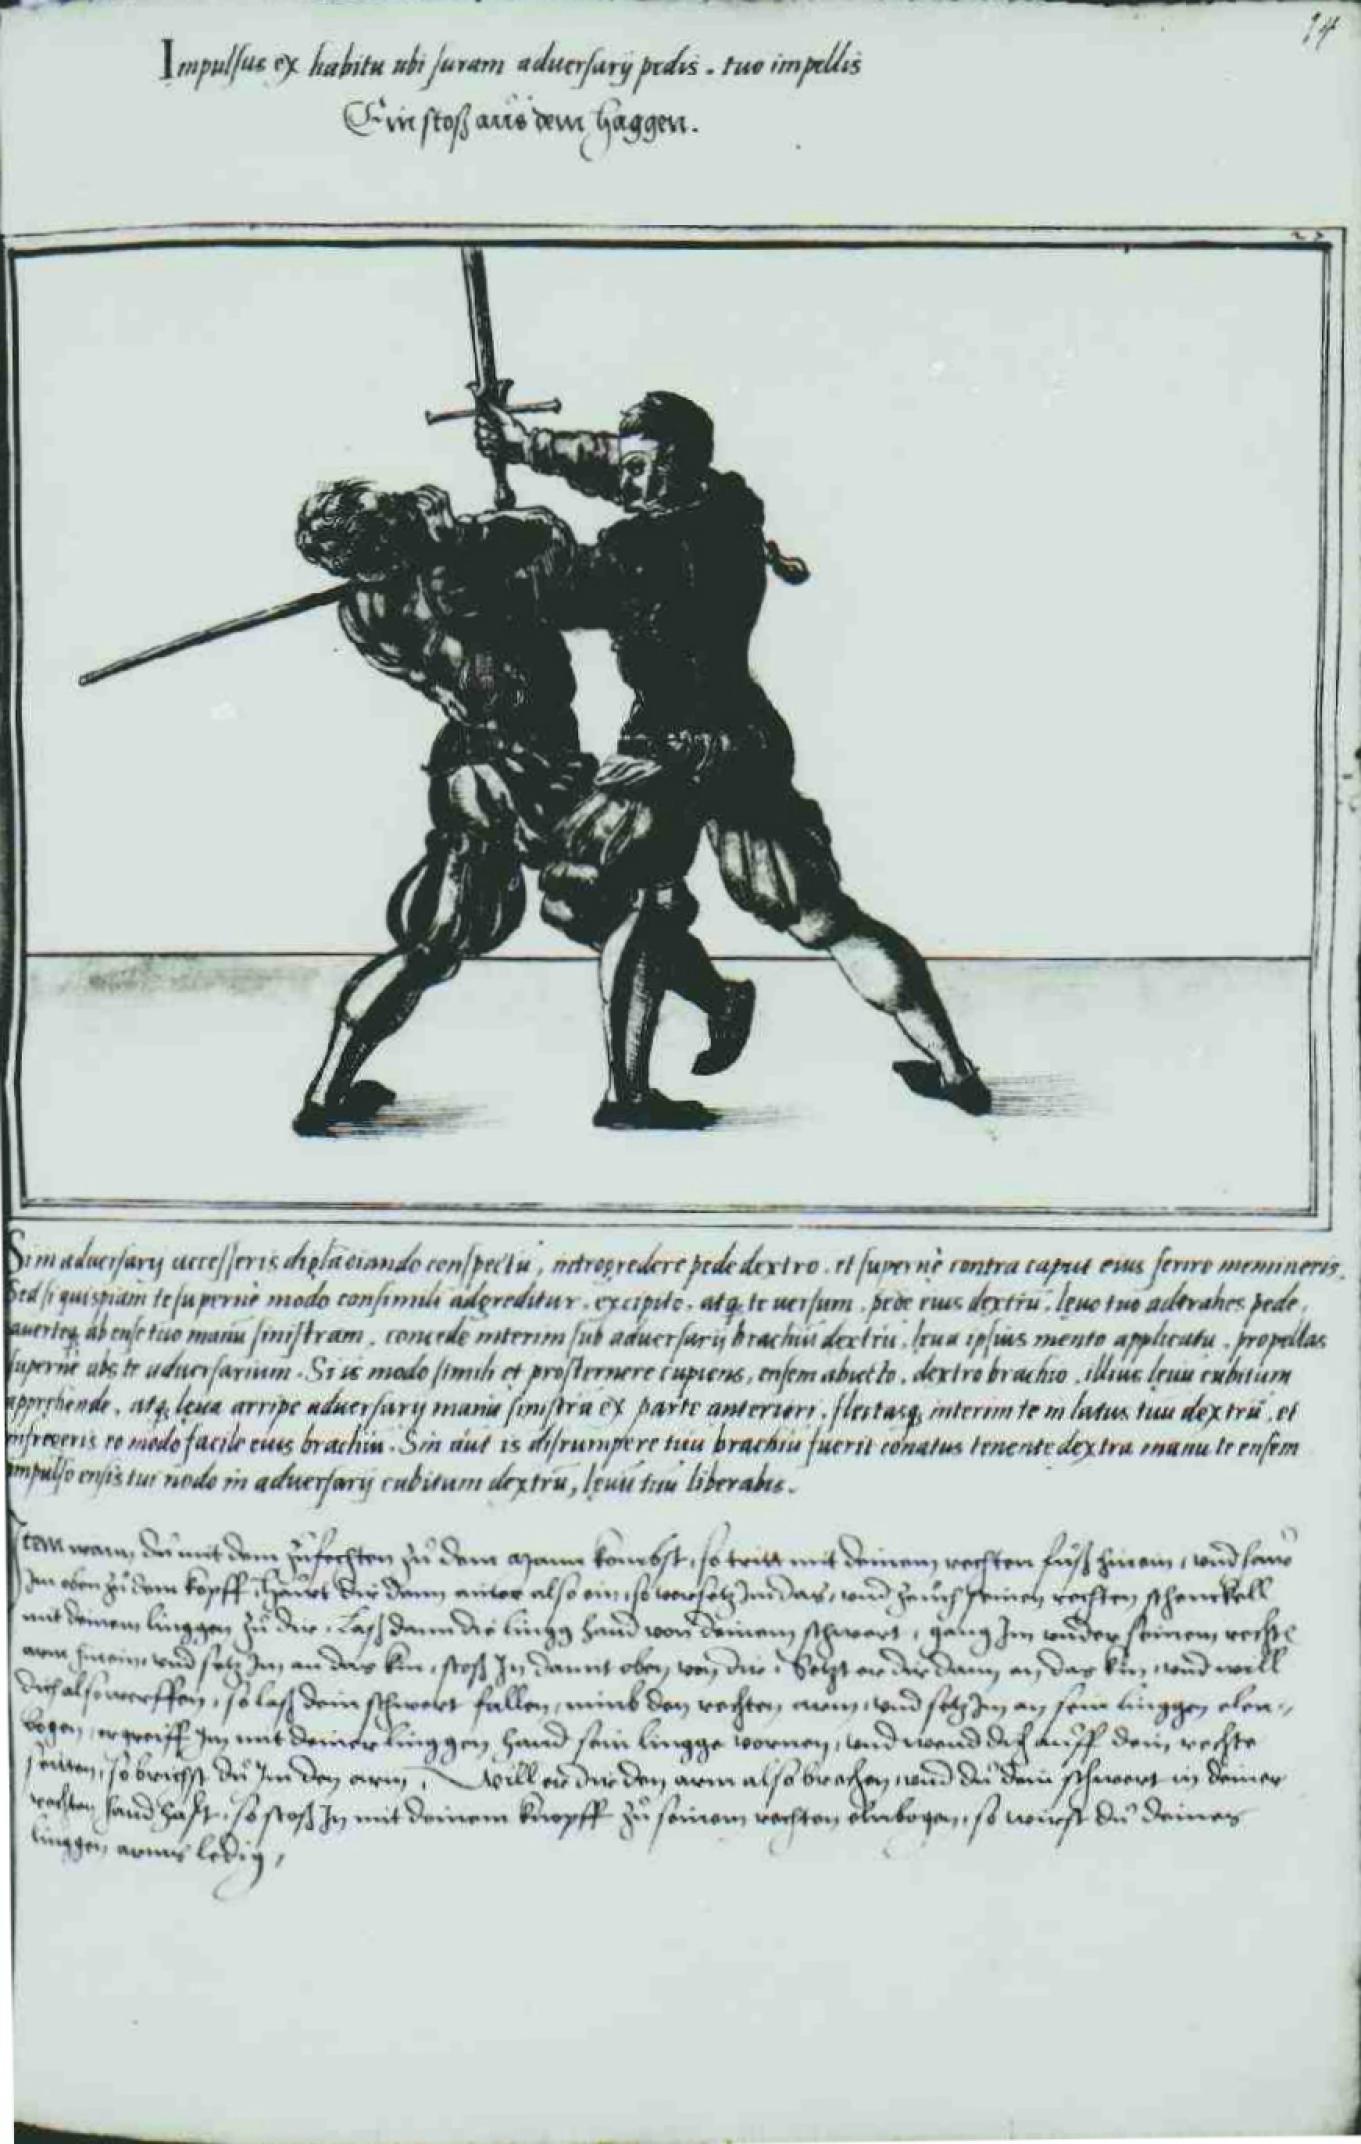 14
Impulsus ex habitu ubi suram adversarij pedis . tuo impellis
Ein stoß aus dem haggen .
Sim adversarij accesseris digladiando conspectū, introgredere pede dextro . et superne contra caput eius ferire memineris.
Sed si quispiam te superne modo consimili adgreditur . excipito . atq, te versum . pede eius dextrū . levo tuo adtrahes pede,
avertesq, ab ense tuo manū sinistram . concede interim sub adversarij brachiū dextrū . leva ipsius mento applicata . propellas
superne abs te adversarium . Si is modo simili et prosternere cupiens, ensem abiecto, dextro brachio . illius levū cubitum
apprehende . atq, leva arripe adversarij manū sinistrā ex parte anteriori . flectasq, interim te in latus tuū dextrū . et
infregeris eo modo facile eius brachiū . Sin aut is disrumpere tuū brachiū fuerit conatus tenente dextra manu te ensem
impulso ensis tui nodo in adversarij cubitum dextrū, levū tuū liberabis .
Item wann dů mit dem zůfechten zů dem Mann kombst, so tritt mit deinem rechten fůß hinein, und haw
Im oben zů dem kopff, Hawt dir dann ainer also ein, so versetz Im das, und zeuch seinen rechten schenckell
mit deinem linggen zů dir, Laß dann die lingg hand von deinem schwert, gang Im under seinem rechte
arm hinein, und setz Im an das kin, stoß In damit oben von dir, Setzt er dir dann an das kin, und will
dich also werffen, so laß dein schwert fallen, nimb den rechten arm, und setz Im an sein linggen elen,,
bogen, ergreiff Im mit deiner linggen hand sein lingge vornen, und wend dich auff dein rechte
seitten, so brichst dů Im den arm, Will er dir den arm also brechen, und dů dein schwert in deiner
rechten hand hast, so stoß In mit deinem knopff zů seinem rechten elnbogen, so wirst dů deines
linggen arms ledig,